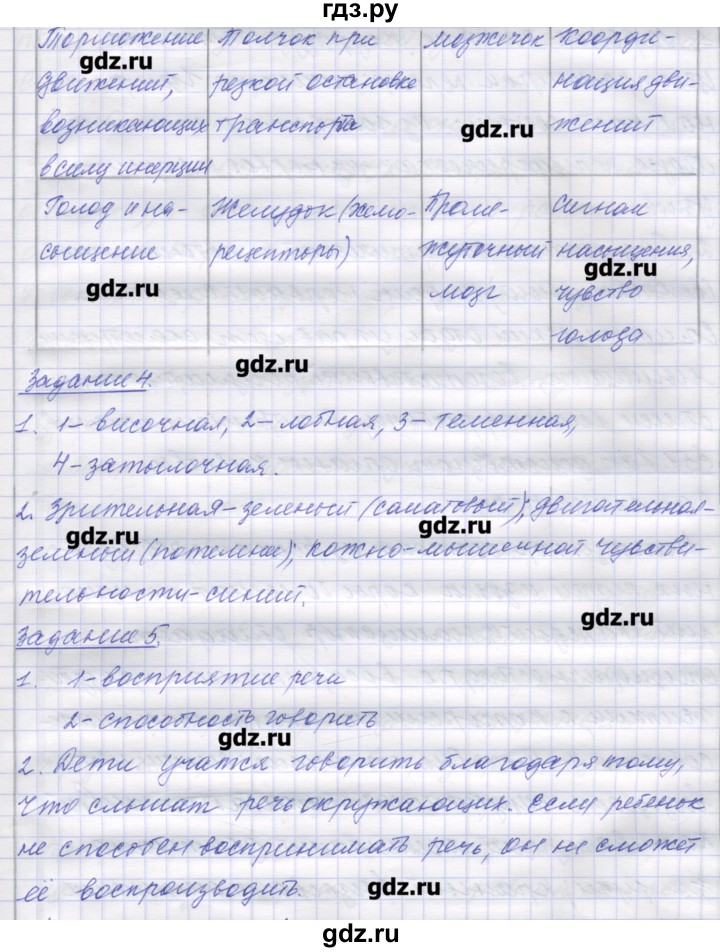 гдз.ру
Торможение Толчок при мозжечок Коорди-
движений, резкой остановке нация дви-
возникающих транспорта жений
в силу инерции
Голод и на- Желудок (хемо- Проме- Сигнал
сыщение рецепторы) жуточный насыщения,
мозг чувство
голода
Задание 4.
1. 1- височная, 2- лобная, 3- теменная,
4- затылочная.
2. Зрительная - зеленый (салатовый); двигательная-
зеленый (потемнее); кожно-мышечной чувстви-
тельности - синий.
Задание 5.
1. 1- восприятие речи
2- способность говорить
2. Дети учатся говорить благодаря тому,
что слышат речь окружающих. Если ребенок
не способен воспринимать речь, он не сможет
её воспроизводить.
gdz.ru
gdz.ru
gdz.ru
gdz.ru
gdz.ru
gdz.ru
gdz.ru
gdz.ru
gdz.ru
gdz.ru
gdz.ru